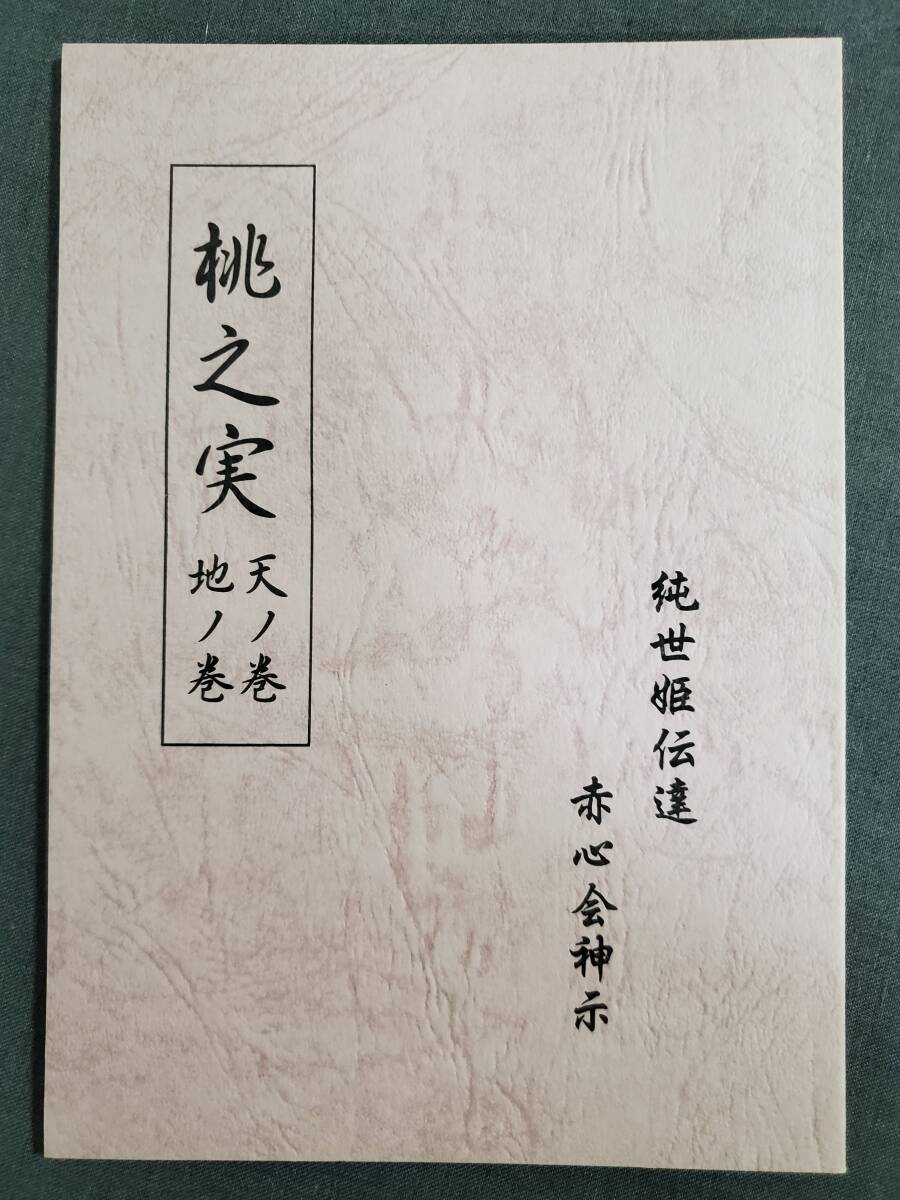 純世姫伝達
赤心会神示
桃之実
天ノ巻
地ノ巻